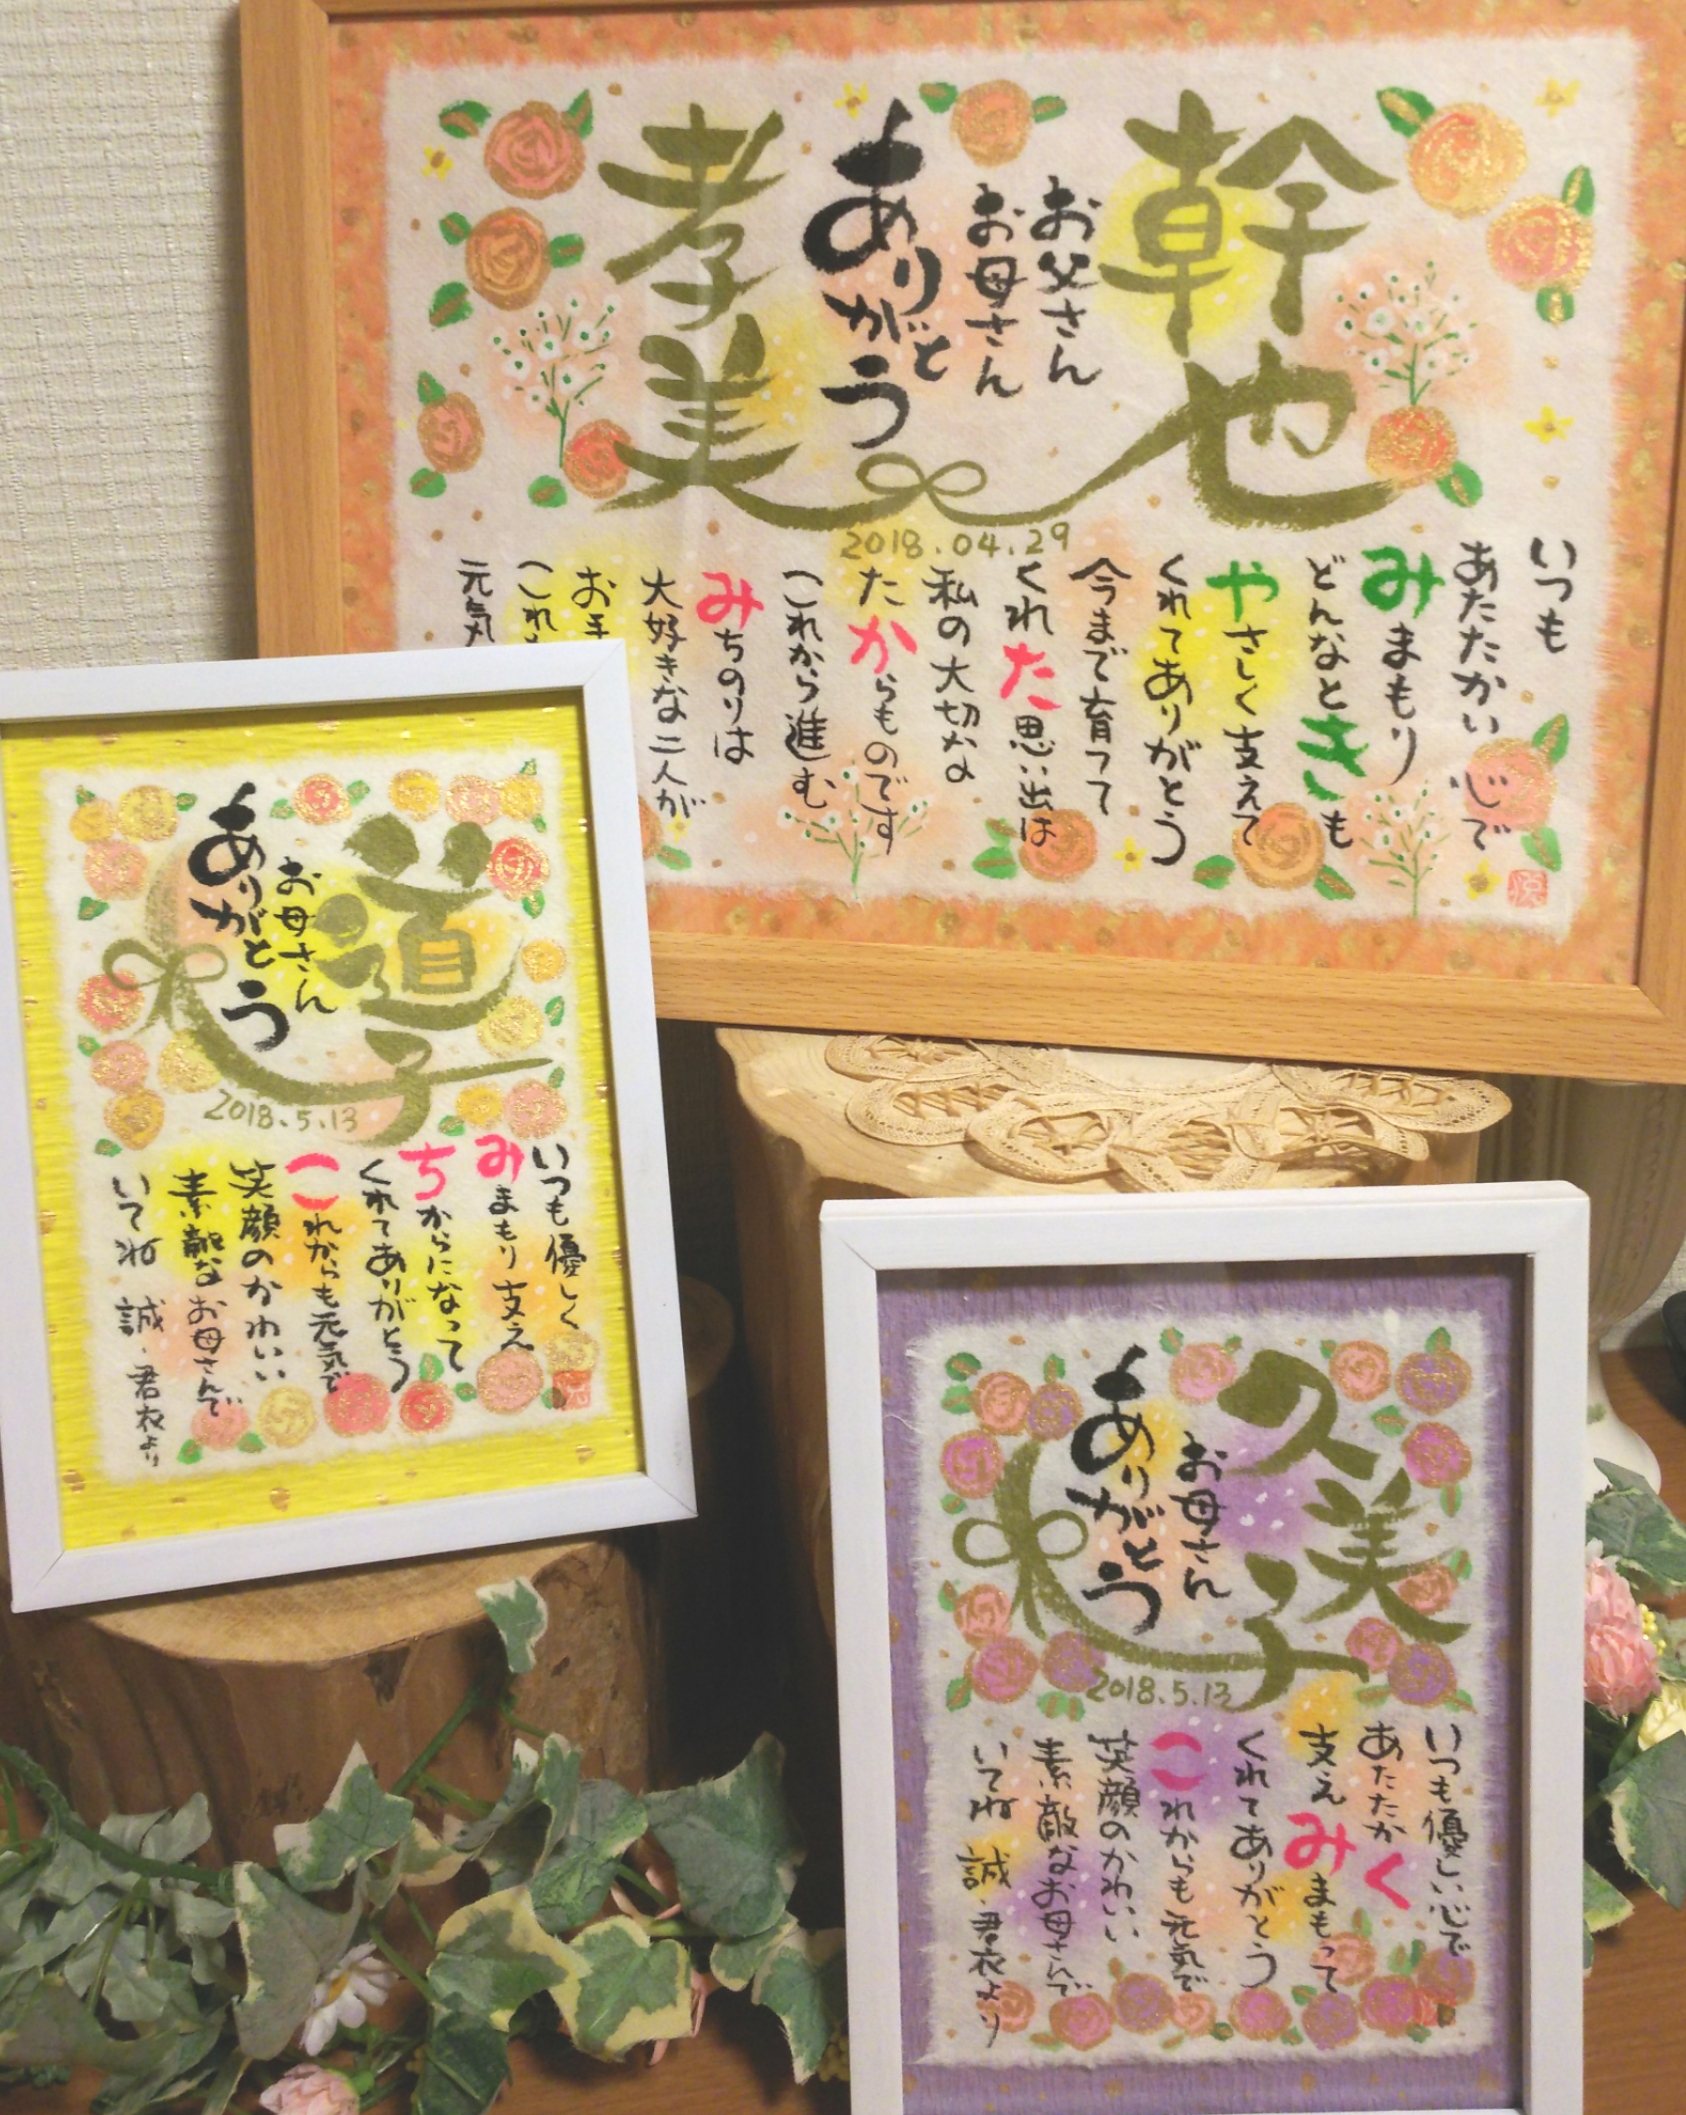 幹也
お父さん
お母さん
ありがとう
孝美
2018.04.29
いつも
あたたかい心で
みまもり
どんなときも
やさしく支えて
くれてありがとう
今まで育てて
くれた思い出は
私の大切な
たからものです
これから進む
みちのりは
大好きな二人が
お手
これ
元気
道子
お母さん
ありがとう
2018.5.13
いつも優しく
みまもり支え
ちからになって
くれてありがとう
これからも元気で
笑顔のかわいい
素敵なお母さんで
いてね 誠・君衣より
久美子
お母さん
ありがとう
2018.5.13
いつも優しい心で
あたたかく
支えみまもって
くれてありがとう
これからも元気で
笑顔のかわいい
素敵なお母さんで
いてね 誠・君衣より